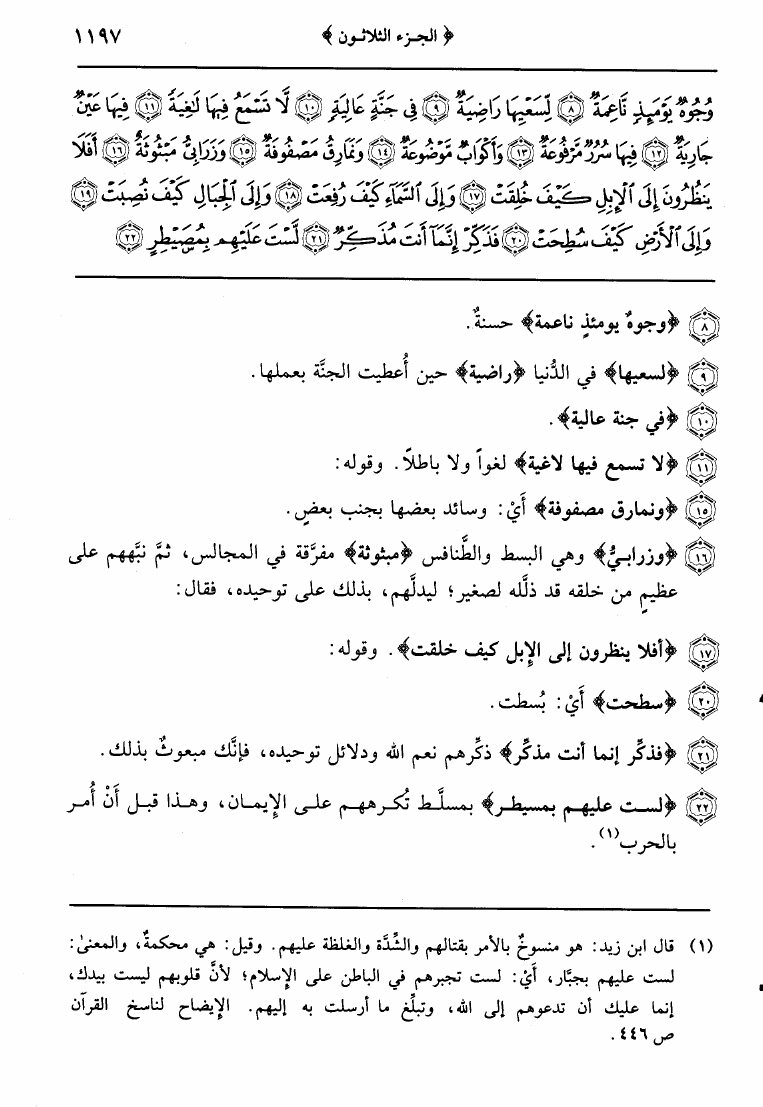 ﴿ الجزء الثلاثون ﴾ ١١٩٧
وُجُوهٌ يَوْمَئِذٍ نَّاعِمَةٌ ۝٨ لِّسَعْيِهَا رَاضِيَةٌ ۝٩ فِي جَنَّةٍ عَالِيَةٍ ۝١٠ لَّا تَسْمَعُ فِيهَا لَاغِيَةً ۝١١ فِيهَا عَيْنٌ
جَارِيَةٌ ۝١٢ فِيهَا سُرُرٌ مَّرْفُوعَةٌ ۝١٣ وَأَكْوَابٌ مَّوْضُوعَةٌ ۝١٤ وَنَمَارِقُ مَصْفُوفَةٌ ۝١٥ وَزَرَابِيُّ مَبْثُوثَةٌ ۝١٦ أَفَلَا
يَنظُرُونَ إِلَى ٱلْإِبِلِ كَيْفَ خُلِقَتْ ۝١٧ وَإِلَى ٱلسَّمَآءِ كَيْفَ رُفِعَتْ ۝١٨ وَإِلَى ٱلْجِبَالِ كَيْفَ نُصِبَتْ ۝١٩
وَإِلَى ٱلْأَرْضِ كَيْفَ سُطِحَتْ ۝٢٠ فَذَكِّرْ إِنَّمَآ أَنتَ مُذَكِّرٌ ۝٢١ لَّسْتَ عَلَيْهِم بِمُصَيْطِرٍ ۝٢٢
٨ ﴿وجوهٌ يومئذٍ ناعمة﴾ حسنةٌ.
٩ ﴿لسعيها﴾ في الدُّنيا ﴿راضية﴾ حين أُعطيت الجنَّة بعملها.
١٠ ﴿في جنة عالية﴾.
١١ ﴿لا تسمع فيها لاغية﴾ لغواً ولا باطلاً. وقوله:
١٥ ﴿ونمارق مصفوفة﴾ أَيْ: وسائد بعضها بجنب بعضٍ.
١٦ ﴿وزرابيُّ﴾ وهي البسط والطَّنافس ﴿مبثوثة﴾ مفرَّقة في المجالس، ثمَّ نبَّههم على
عظيمٍ من خلقه قد ذلَّله لصغير؛ ليدلَّهم، بذلك على توحيده، فقال:
١٧ ﴿أفلا ينظرون إلى الإبل كيف خلقت﴾. وقوله:
٢٠ ﴿سطحت﴾ أَيْ: بُسطت.
٢١ ﴿فذكِّر إنما أنت مذكِّر﴾ ذكِّرهم نعم الله ودلائل توحيده، فإنَّك مبعوثٌ بذلك.
٢٢ ﴿لست عليهم بمسيطر﴾ بمسلَّط تُكرههم على الإيمان، وهذا قبل أَنْ أُمر
بالحرب(١).
(١) قال ابن زيد: هو منسوخٌ بالأمر بقتالهم والشِّدَّة والغلظة عليهم. وقيل: هي محكمةٌ، والمعنىٰ:
لست عليهم بجبَّار، أَيْ: لست تجبرهم في الباطن على الإسلام؛ لأنَّ قلوبهم ليست بيدك،
إنما عليك أن تدعوهم إلى الله، وتبلِّغ ما أرسلت به إليهم. الإيضاح لناسخ القرآن
ص ٤٤٦.